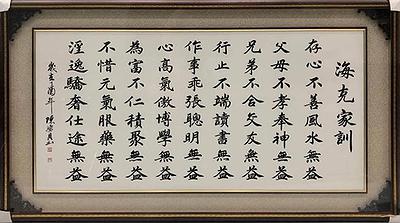 海克家訓
存心不善風水無益
父母不孝奉神無益
兄弟不合交友無益
行止不端讀書無益
作事乖張聰明無益
心高氣傲博學無益
為富不仁積聚無益
不惜元氣服藥無益
淫逸驕奢仕途無益